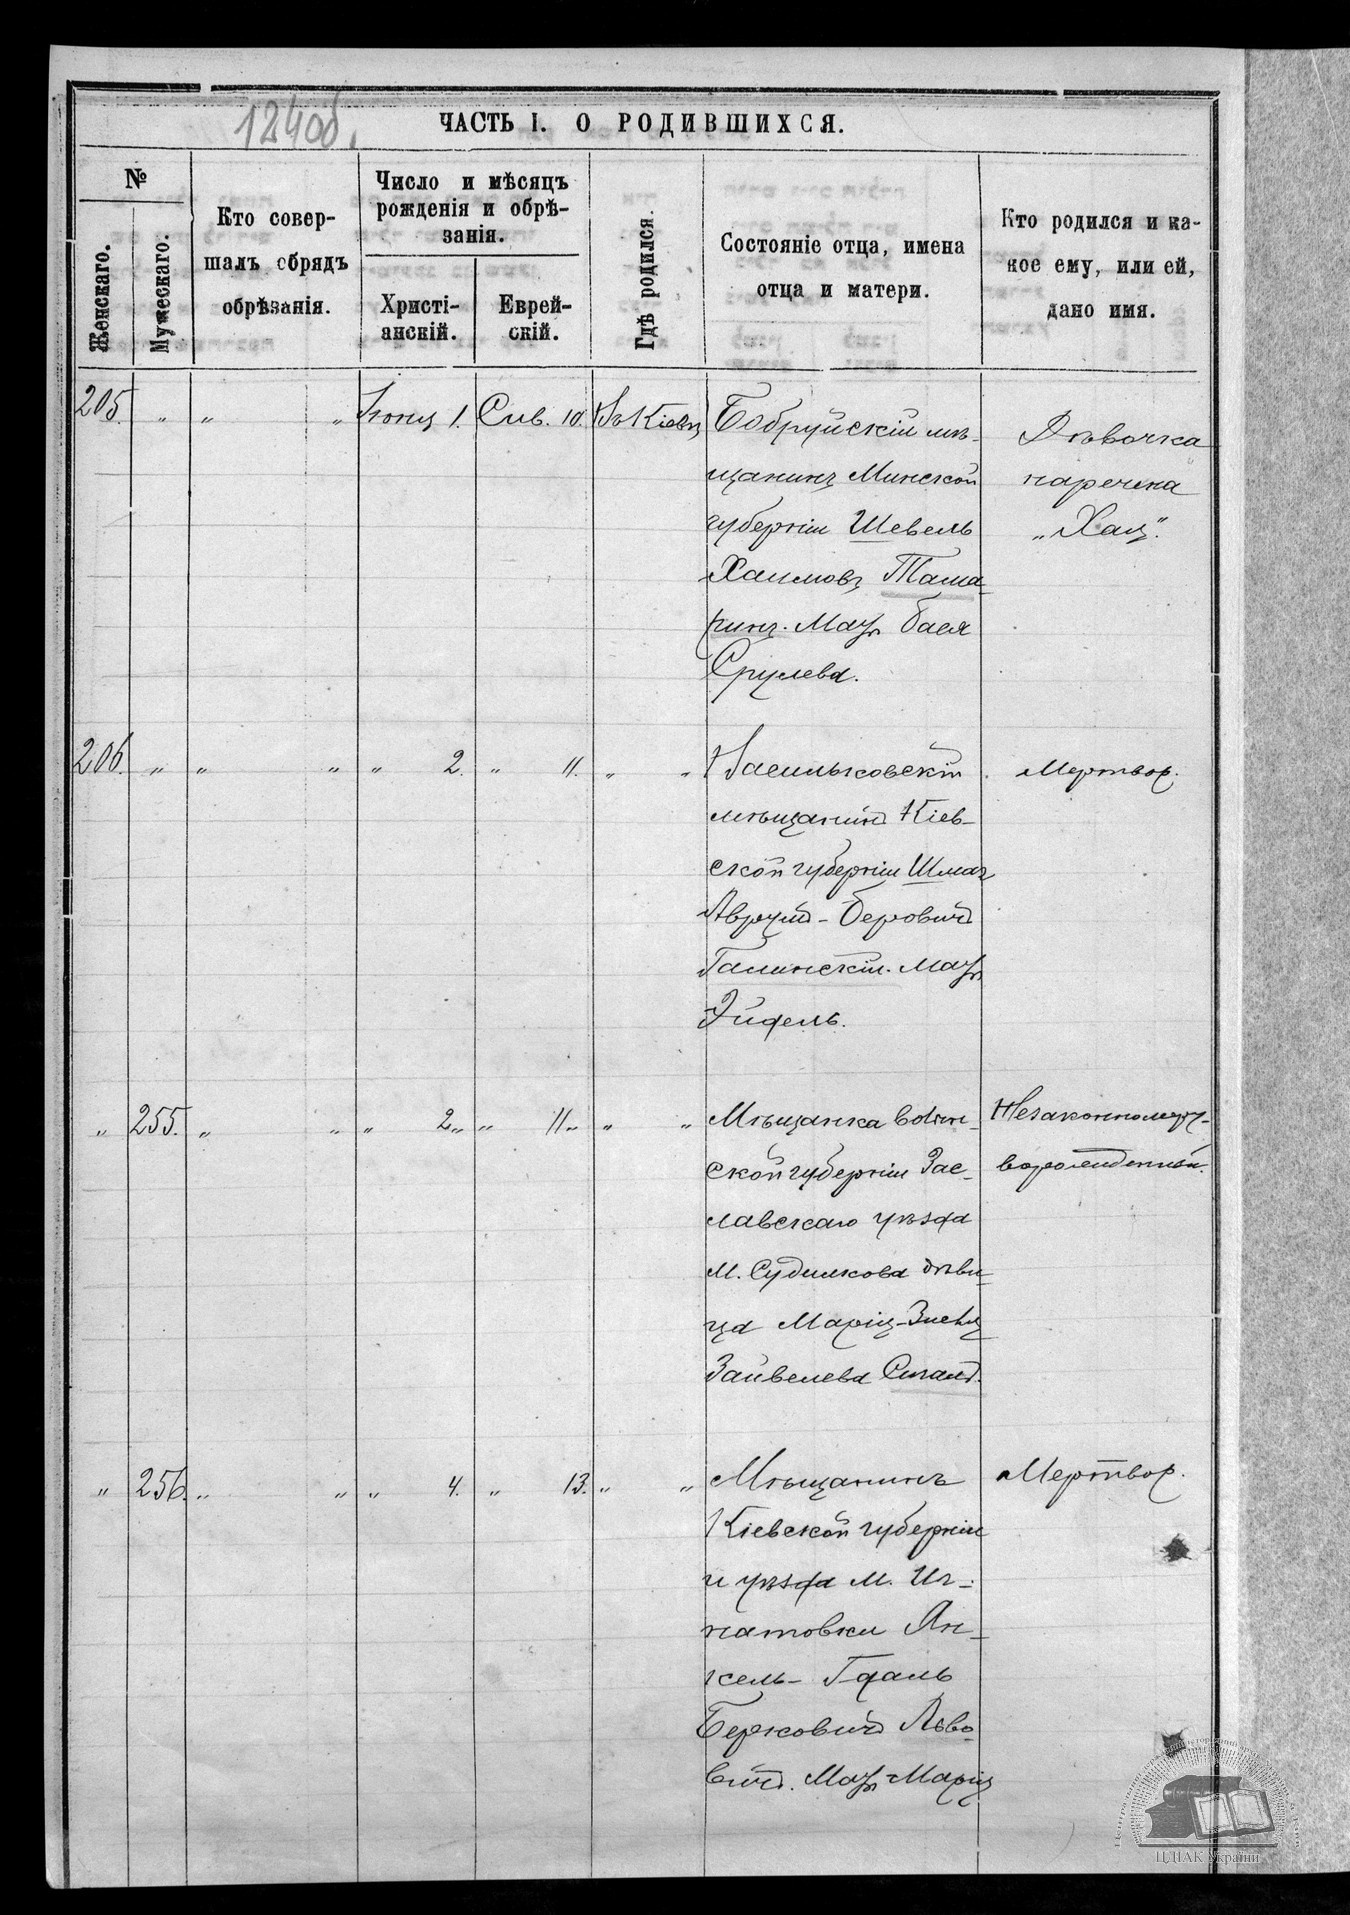 124об.
ЧАСТЬ I. О РОДИВШИХСЯ.
№
Женскаго.
Мужескаго.
Кто совер-
шалъ обрядъ
обрѣзанія.
Число и мѣсяцъ
рожденія и обрѣ-
занія.
Христі-
анскій.
Еврей-
скій.
Гдѣ родился.
Состояніе отца, имена
отца и матери.
Кто родился и ка-
кое ему, или ей,
дано имя.
205. „ „ „ Іюня 1. Сив. 10. Въ Кіевѣ
Бобруйскій мѣ-
щанинъ Минской
губерніи Шевель
Хаимовъ Тама-
ринъ. Мать Бася
Срулева.
Дѣвочка
наречена
„Хая“.
206. „ „ „ „ 2. „ 11. „ „
Васильковскій
мѣщанинъ Кіев-
ской губерніи
Берович
Галинскій. Мать
Мертвор.
„ 255. „ „ „ 2. „ 11. „ „
Мѣщанка Волын-
ской губерніи Зас-
лавскаго уѣзда
м. Судилкова дѣви-
ца Марія
Зайвелева Сигал.
Незаконномерт-
ворожденный.
„ 256. „ „ „ 4. „ 13. „ „
Мѣщанинъ
Кіевской губерніи
и уѣзда м. Иг-
натовки Ян-
кель-Гдаль
Беркович Льво-
вич. Мать Марія
Мертвор.
ЦДІАК України